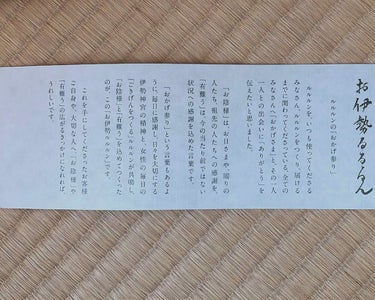 お伊勢るるるん
ルルルンの「おかげ参り」
ルルルンを、いつも使ってくださる
みなさん。ルルルンをつくり、届ける
までに関わってくださっている、全ての
みなさん。「おかげさま」と、その一人
一人との出会いに「ありがとう」を
伝えたいと思いました。
「お陰様」は、お日さまや周りの
人たち、祖先の人たちへの感謝を、
「有難う」は、今の当たり前ではない
状況への感謝を込めた言葉です。
「おかげ参り」という言葉もあるよ
うに、毎日に感謝し、日々を大切にする
伊勢神宮の精神と、女性の毎日の
「ごきげんをつくる」ルルルンが共鳴し、
「お陰様」と「有難う」を込めてつくった
のが、この「お伊勢ルルルン」です。
これを手にしてくださったお客様
ご自身や、大切な人へ、「お陰様」や
「有難う」の広がるきっかけになれれば、
うれしいです。